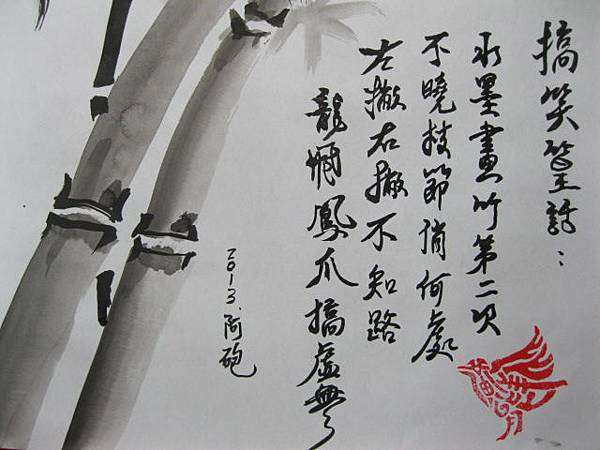 搞笑篁話：
水墨畫竹第二次
不曉枝節俏何處
左撇右撇不知路
龍鳳爪搞虛無
2013.阿砲